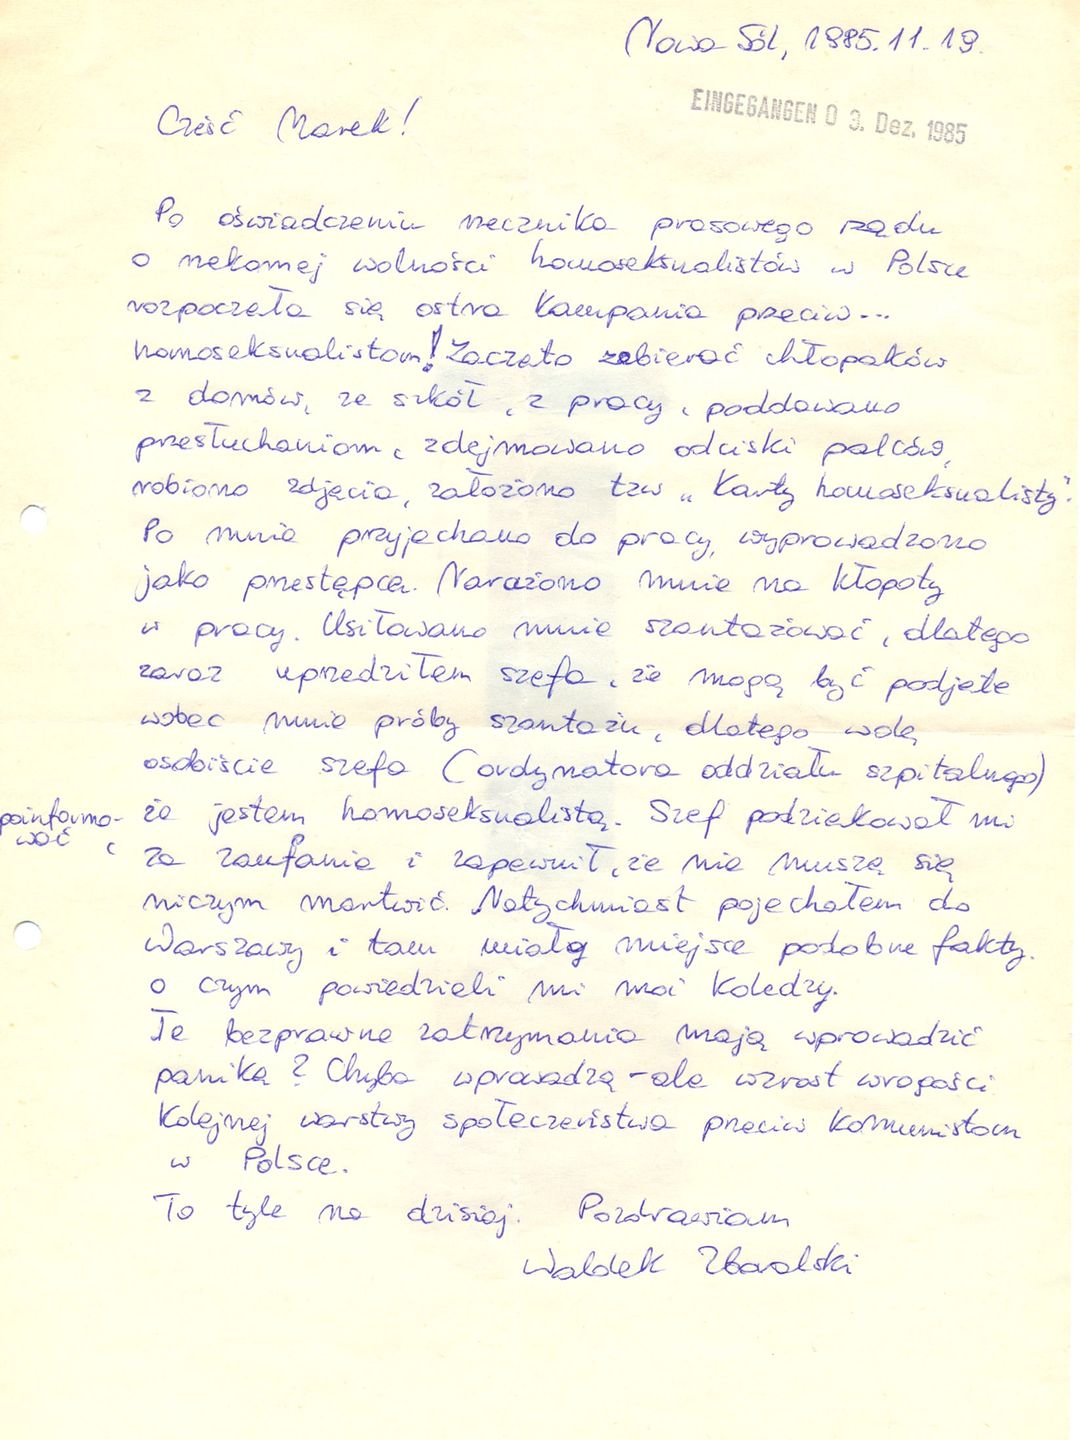 Nowa Sól, 1985.11.19.
EINGEGANGEN 0 3. Dez. 1985
Cześć Marek!
Po oświadczeniu rzecznika prasowego rządu
o rzekomej wolności homoseksualistów w Polsce
rozpoczęła się ostra kampania przeciw...
homoseksualistom! Zaczęto zabierać chłopaków
z domów, ze szkół, z pracy, poddawano
przesłuchaniom, zdejmowano odciski palców,
robiono zdjęcia, założono tzw „Karty homoseksualisty".
Po mnie przyjechano do pracy, wyprowadzono
jako przestępcę. Narażono mnie na kłopoty
w pracy. Usiłowano mnie szantażować, dlatego
zaraz uprzedziłem szefa, że mogą być podjęte
wobec mnie próby szantażu, dlatego wolę
osobiście szefa (ordynatora oddziału szpitalnego)
poinformo-
wać,
że jestem homoseksualistą. Szef podziękował mi
za zaufanie i zapewnił, że nie muszę się
niczym martwić. Natychmiast pojechałem do
Warszawy i tam miały miejsce podobne fakty.
o czym powiedzieli mi moi koledzy.
Te bezprawne zatrzymania mają wprowadzić
panikę? Chyba wprowadzą - ale wzrost wrogości
kolejnej warstwy społeczeństwa przeciw komunistom
w Polsce.
To tyle na dzisiaj. Pozdrawiam
Waldek Zboralski